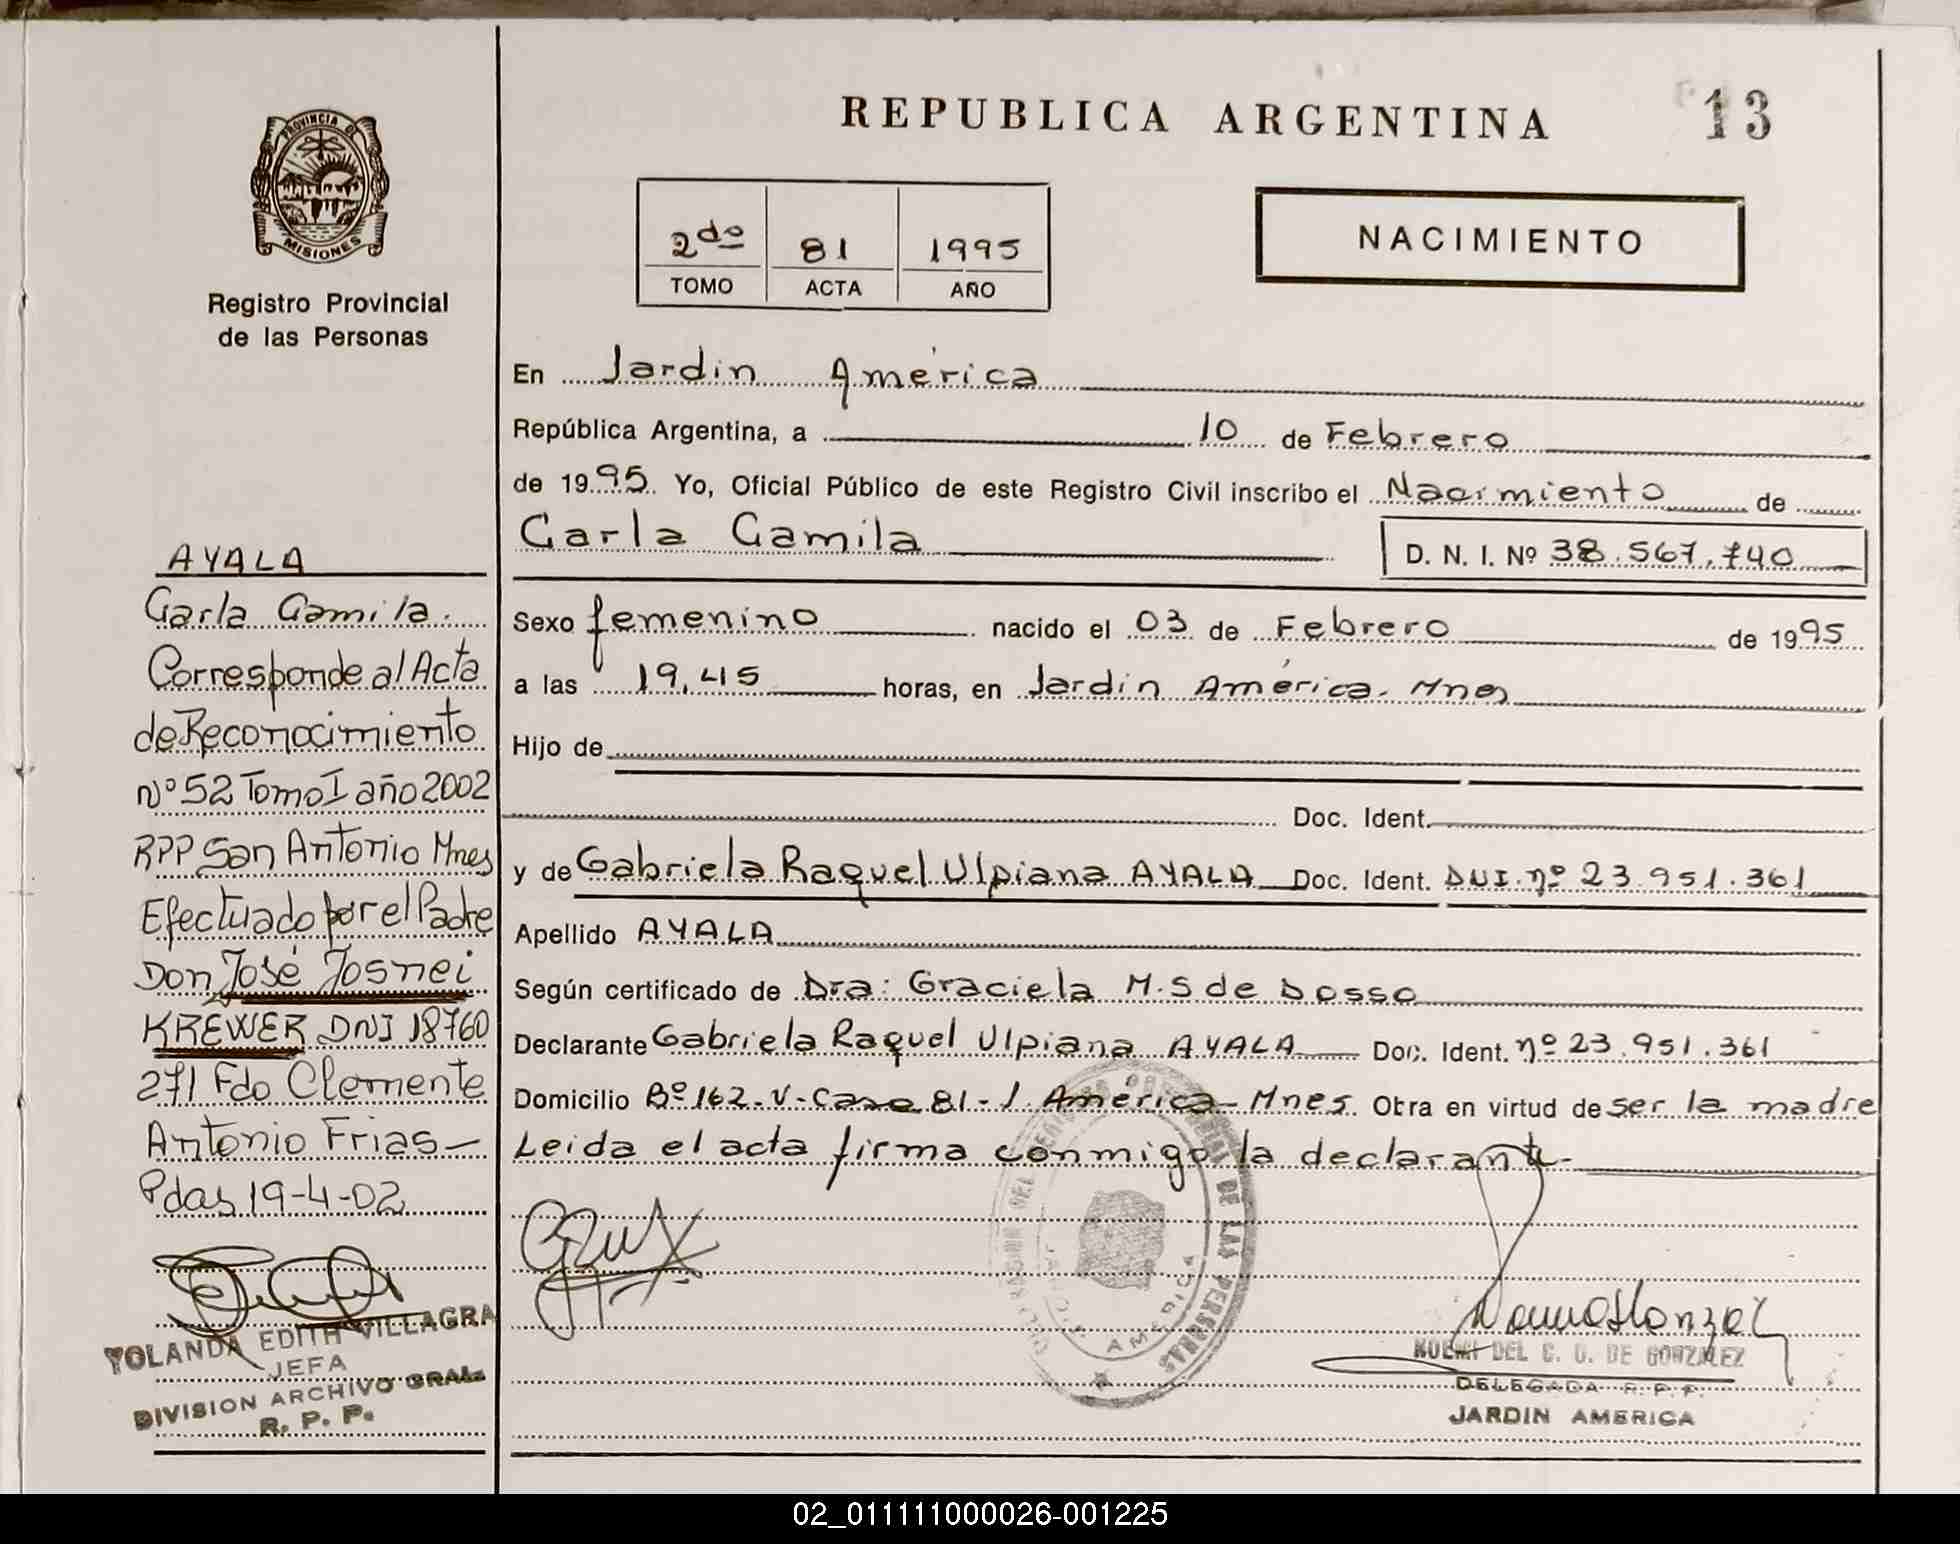 REPUBLICA ARGENTINA
13
PROVINCIA DE
MISIONES
Registro Provincial
de las Personas
2do 81 1995
TOMO ACTA AÑO
NACIMIENTO
En Jardin América
República Argentina, a 10 de Febrero
de 1995. Yo, Oficial Público de este Registro Civil inscribo el Nacimiento de
Carla Camila
D. N. I. Nº 38.567.740
Sexo femenino nacido el 03 de Febrero de 1995
a las 19,45 horas, en Jardin América. Mnes
Hijo de
Doc. Ident.
y de Gabriela Raquel Ulpiana AYALA Doc. Ident. DNI.nº 23.951.361
Apellido AYALA
Según certificado de Dra: Graciela M.S de Dosso
Declarante Gabriela Raquel Ulpiana AYALA Doc. Ident. nº 23.951.361
Domicilio Bº 162.V-Casa 81-J. América-Mnes. Obra en virtud de ser la madre
Leida el acta firma conmigo la declarante-
AYALA
Carla Camila.
Corresponde al Acta
de Reconocimiento
Nº 52 Tomo I año 2002
RPP San Antonio Mnes
Efectuado por el Padre
Don José Josnei
KREWER DNI 18760
271 Fdo Clemente
Antonio Frias-
Pdas 19-4-02
YOLANDA EDITH VILLAGRA
JEFA
DIVISION ARCHIVO GRAL.
R. P. P.
DE LAS PERSONAS
AMERICA
NOEMI DEL C. O. DE GONZALEZ
DELEGADA R.P.P.
JARDIN AMERICA
02_011111000026-001225